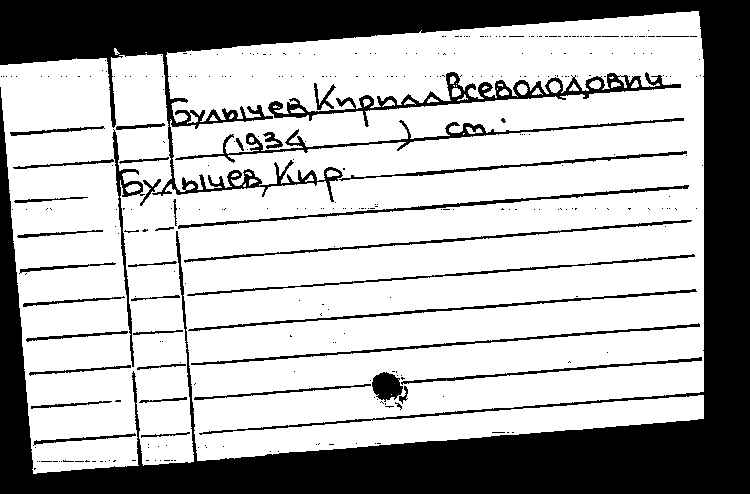 Булычев, Кирилл Всеволодович
(1934 ) ст.:
Булычев, Кир.